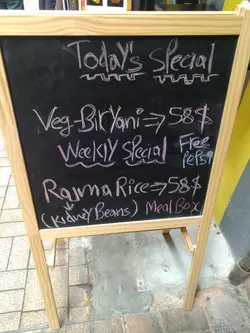 Today's Special
Veg-Biryani → 58$
Weekly Special Free Pepsi
Rajma Rice → 58$
(Kidney Beans) Meal Box